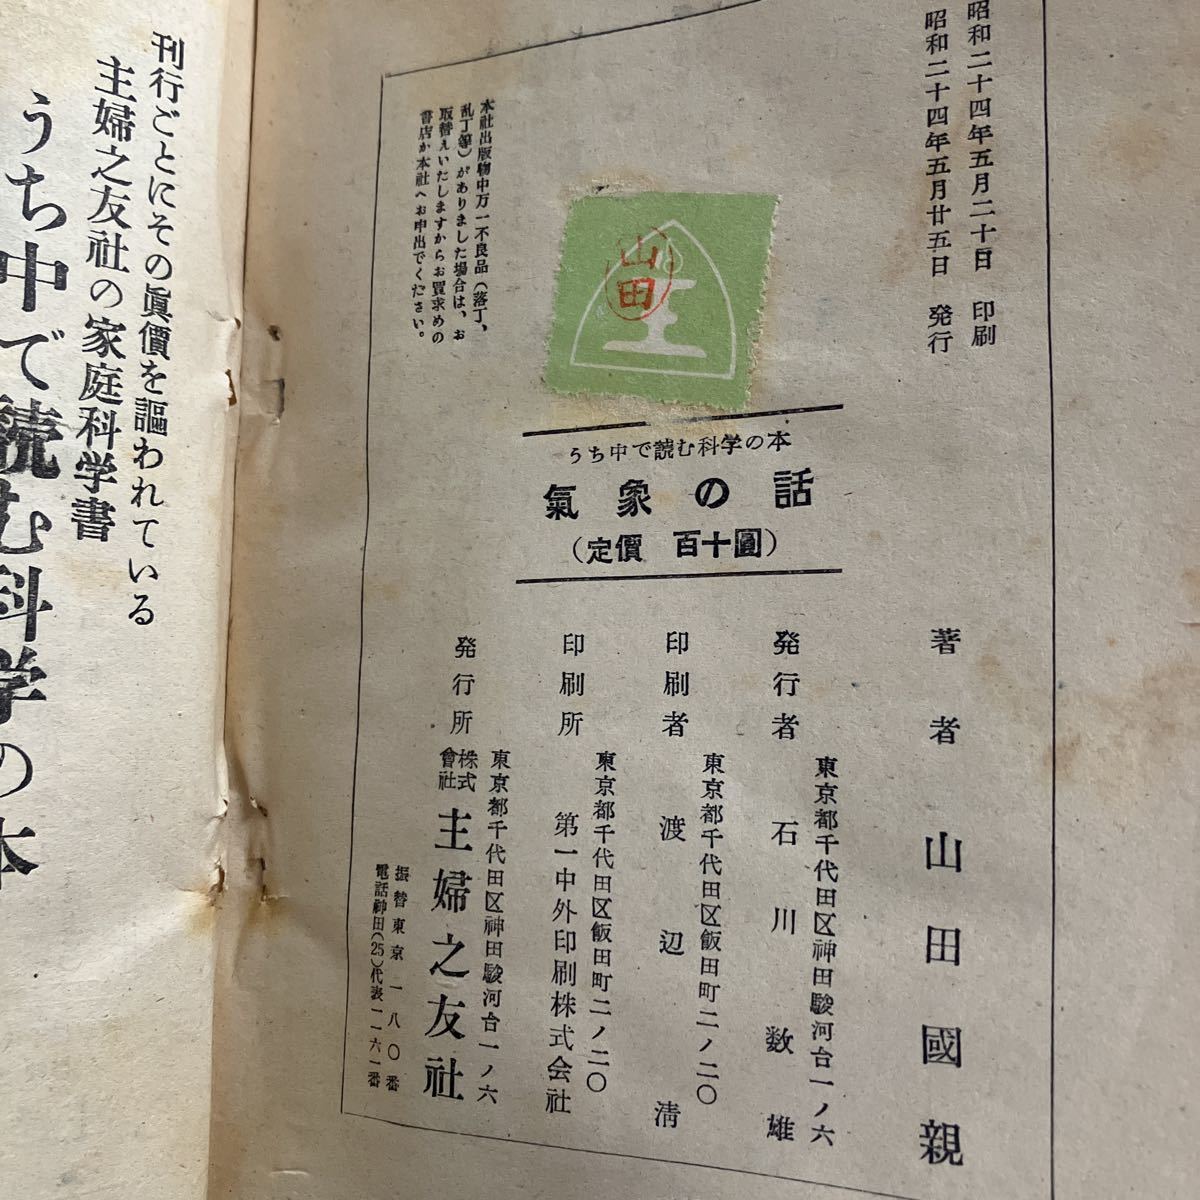 昭和二十四年五月二十日　印刷
昭和二十四年五月廿五日　発行
山田
本社出版物中万一不良品（落丁、
乱丁等）がありました場合は、お
取替えいたしますからお買求めの
書店か本社へお申出でください。
うち中で読む科学の本
氣象の話
（定價　百十圓）
著者　山田國親
東京都千代田区神田駿河台一ノ六
発行者　石川数雄
東京都千代田区飯田町二ノ二〇
印刷者　渡辺淸
東京都千代田区飯田町二ノ二〇
印刷所　第一中外印刷株式会社
東京都千代田区神田駿河台一ノ六
発行所　株式會社　主婦之友社
振替東京一八〇番
電話神田（25）代表一一六一番
刊行ごとにその眞價を謳われている
主婦之友社の家庭科学書
うち中で読む科学の本